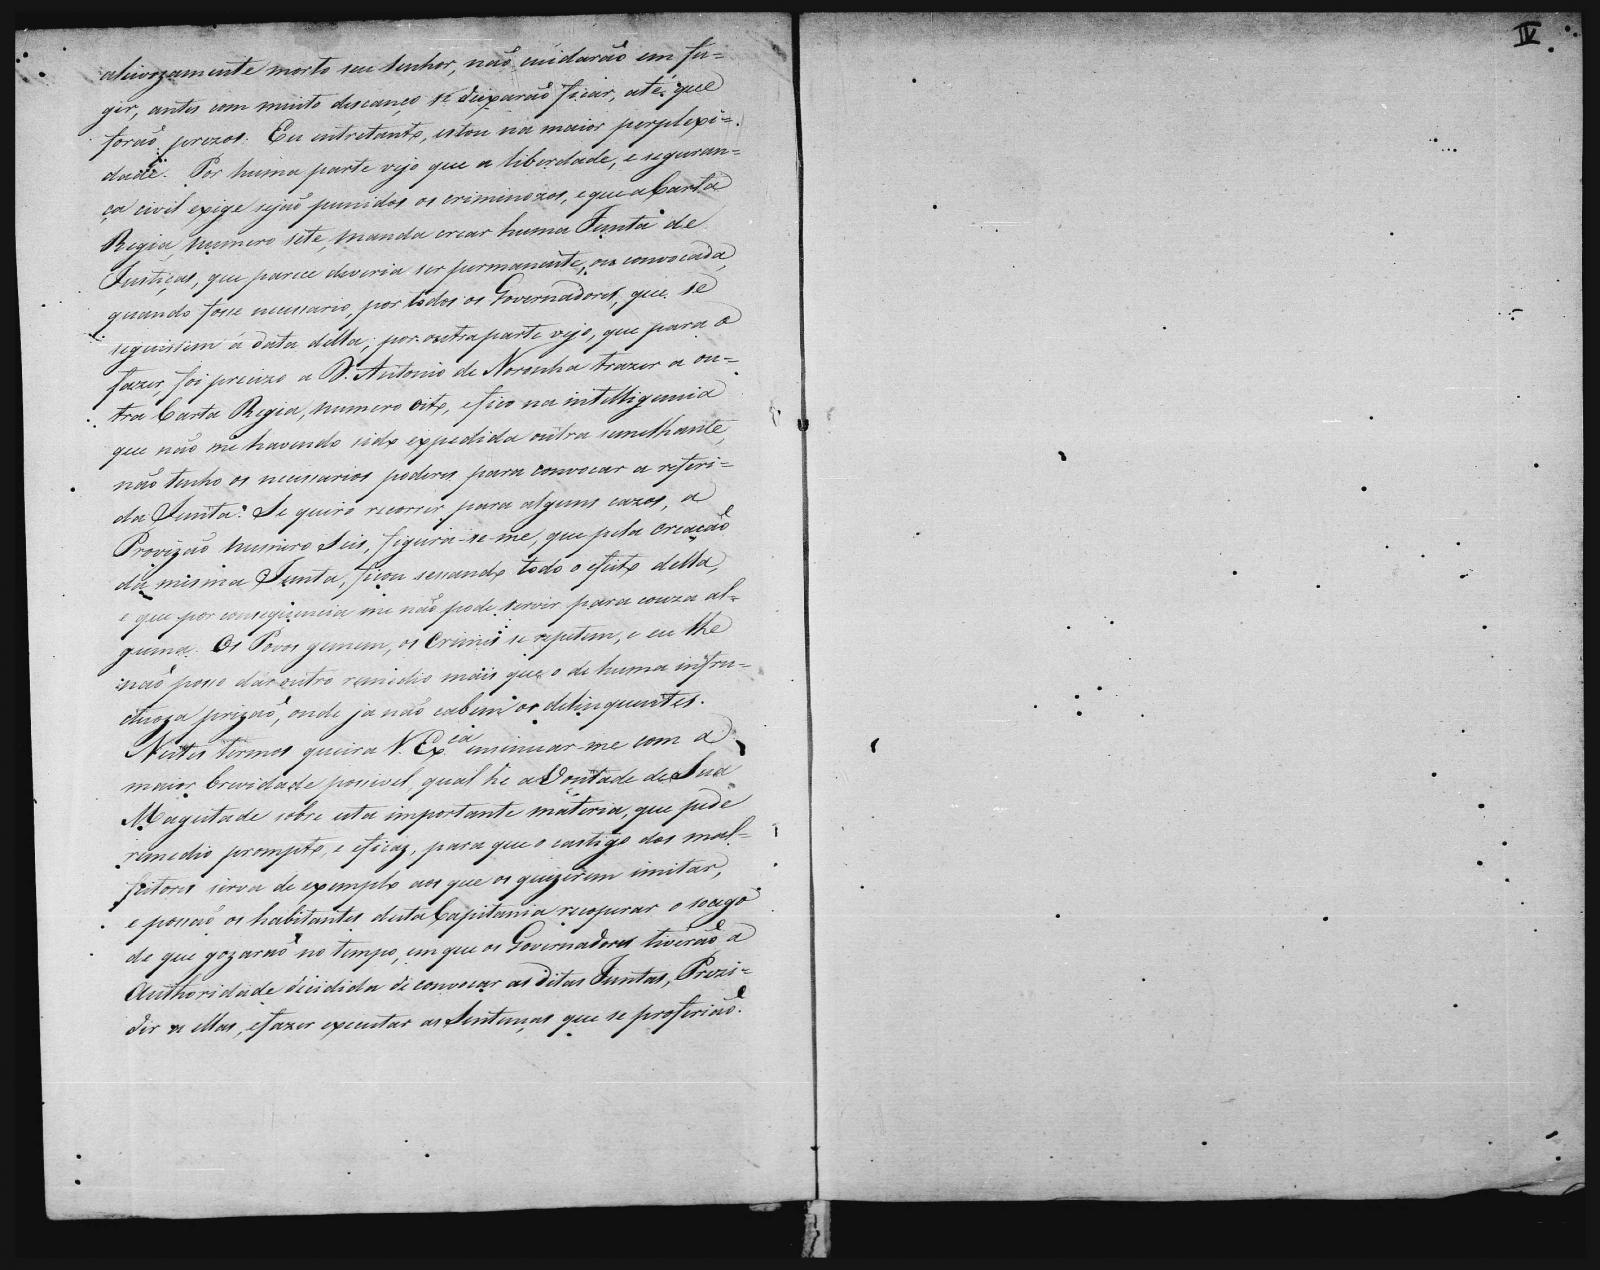 aleivozamente morto seu Senhor, não cuidarão em fu=
gir, antes com muito descanço se deixarão ficar, até que
forão prezos. Eu entretanto, estou na maior perplexi=
dade. Por huma parte vejo que a liberdade, e seguran=
ça civil exige sejão punidos os criminozos, e que a Carta
Regia, numero sete, manda crear huma Junta de
Justiças, que parece deveria ser permanente, ou convocada,
quando fosse necessario, por todos os Governadores, que se
seguissem á data della; por outra parte vejo, que para o
fazer, foi precizo a D. Antonio de Noronha trazer a ou=
tra Carta Regia, numero oito, e fico na intelligencia
que não me havendo sido expedida outra semelhante,
não tenho os necessarios poderes para convocar a referi=
da Junta. Se quero recorrer para alguns cazos, a
Provizão numero Seis, figura-se-me, que pela creação
da mesma Junta, ficou sessando todo o efeito della,
e que por conseguencia me não pode servir para couza al=
guma. Os Povos gemem, os Crimes se repetem, e eu lhe
não posso dar outro remedio mais que o de huma infru=
ctuoza prizão, onde ja não cabem os delinquentes.
Nestes termos queira V. Ex.ca insinuar-me com a
maior brevidade possivel, qual he a Vontade de Sua
Magestade sobre esta importante materia, que pede
remedio prompto, e eficaz, para que o castigo dos mal=
feitores sirva de exemplo aos que os quizerem imitar,
e possão os habitantes desta Capitania recuperar o socego
de que gozarão no tempo, em que os Governadores tiverão a
Authoridade decidida de convocar as ditas Juntas, Prezi=
dir n'ellas, e fazer executar as Sentenças que se proferião.
IV